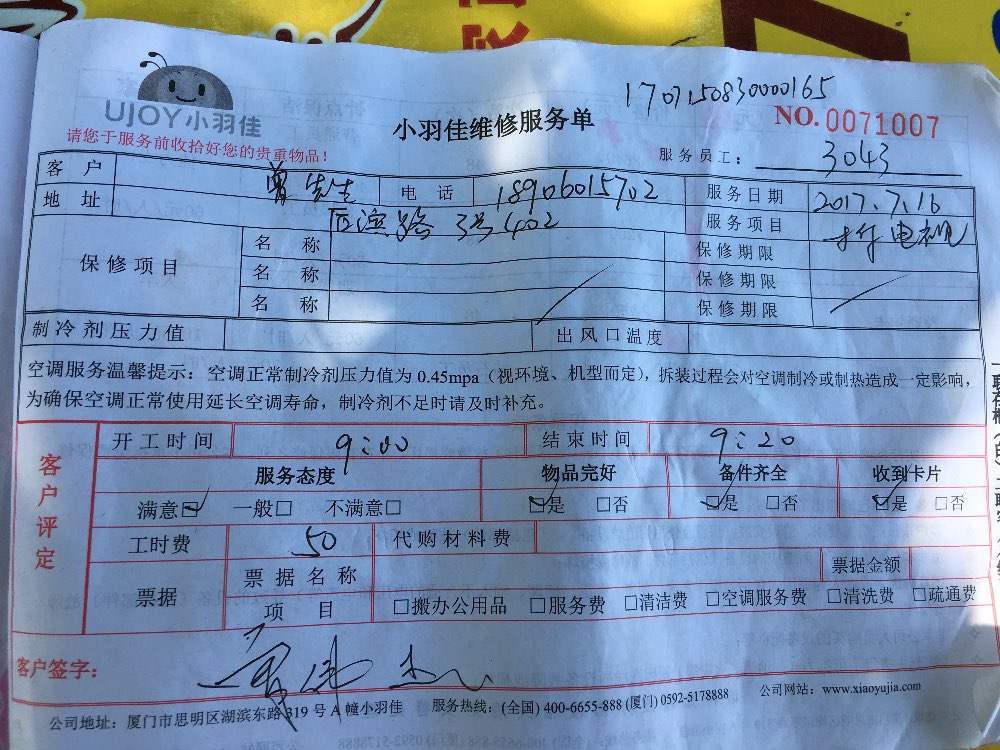 UJOY小羽佳
170715083000165
小羽佳维修服务单
NO.0071007
请您于服务前收拾好您的贵重物品！
服务员工： 3043
客 户 曾先生 电 话 18906015702 服务日期 2017.7.16
地 址 后滨路 3号402 服务项目 拆电视
保修项目 名 称 保修期限
名 称 保修期限
名 称 保修期限
制冷剂压力值 出风口温度
空调服务温馨提示：空调正常制冷剂压力值为 0.45mpa（视环境、机型而定），拆装过程会对空调制冷或制热造成一定影响，
为确保空调正常使用延长空调寿命，制冷剂不足时请及时补充。
客户评定
开工时间 9:00 结束时间 9:20
服务态度 物品完好 备件齐全 收到卡片
满意☑ 一般□ 不满意□ ☑是 □否 ☑是 □否 ☑是 □否
工时费 50 代购材料费
票据 票据名称 票据金额
项 目 □搬办公用品 □服务费 □清洁费 □空调服务费 □清洗费 □疏通费
客户签字：
公司地址：厦门市思明区湖滨东路 319 号 A 幢小羽佳 服务热线：(全国) 400-6655-888 (厦门) 0592-5178888 公司网站：www.xiaoyujia.com